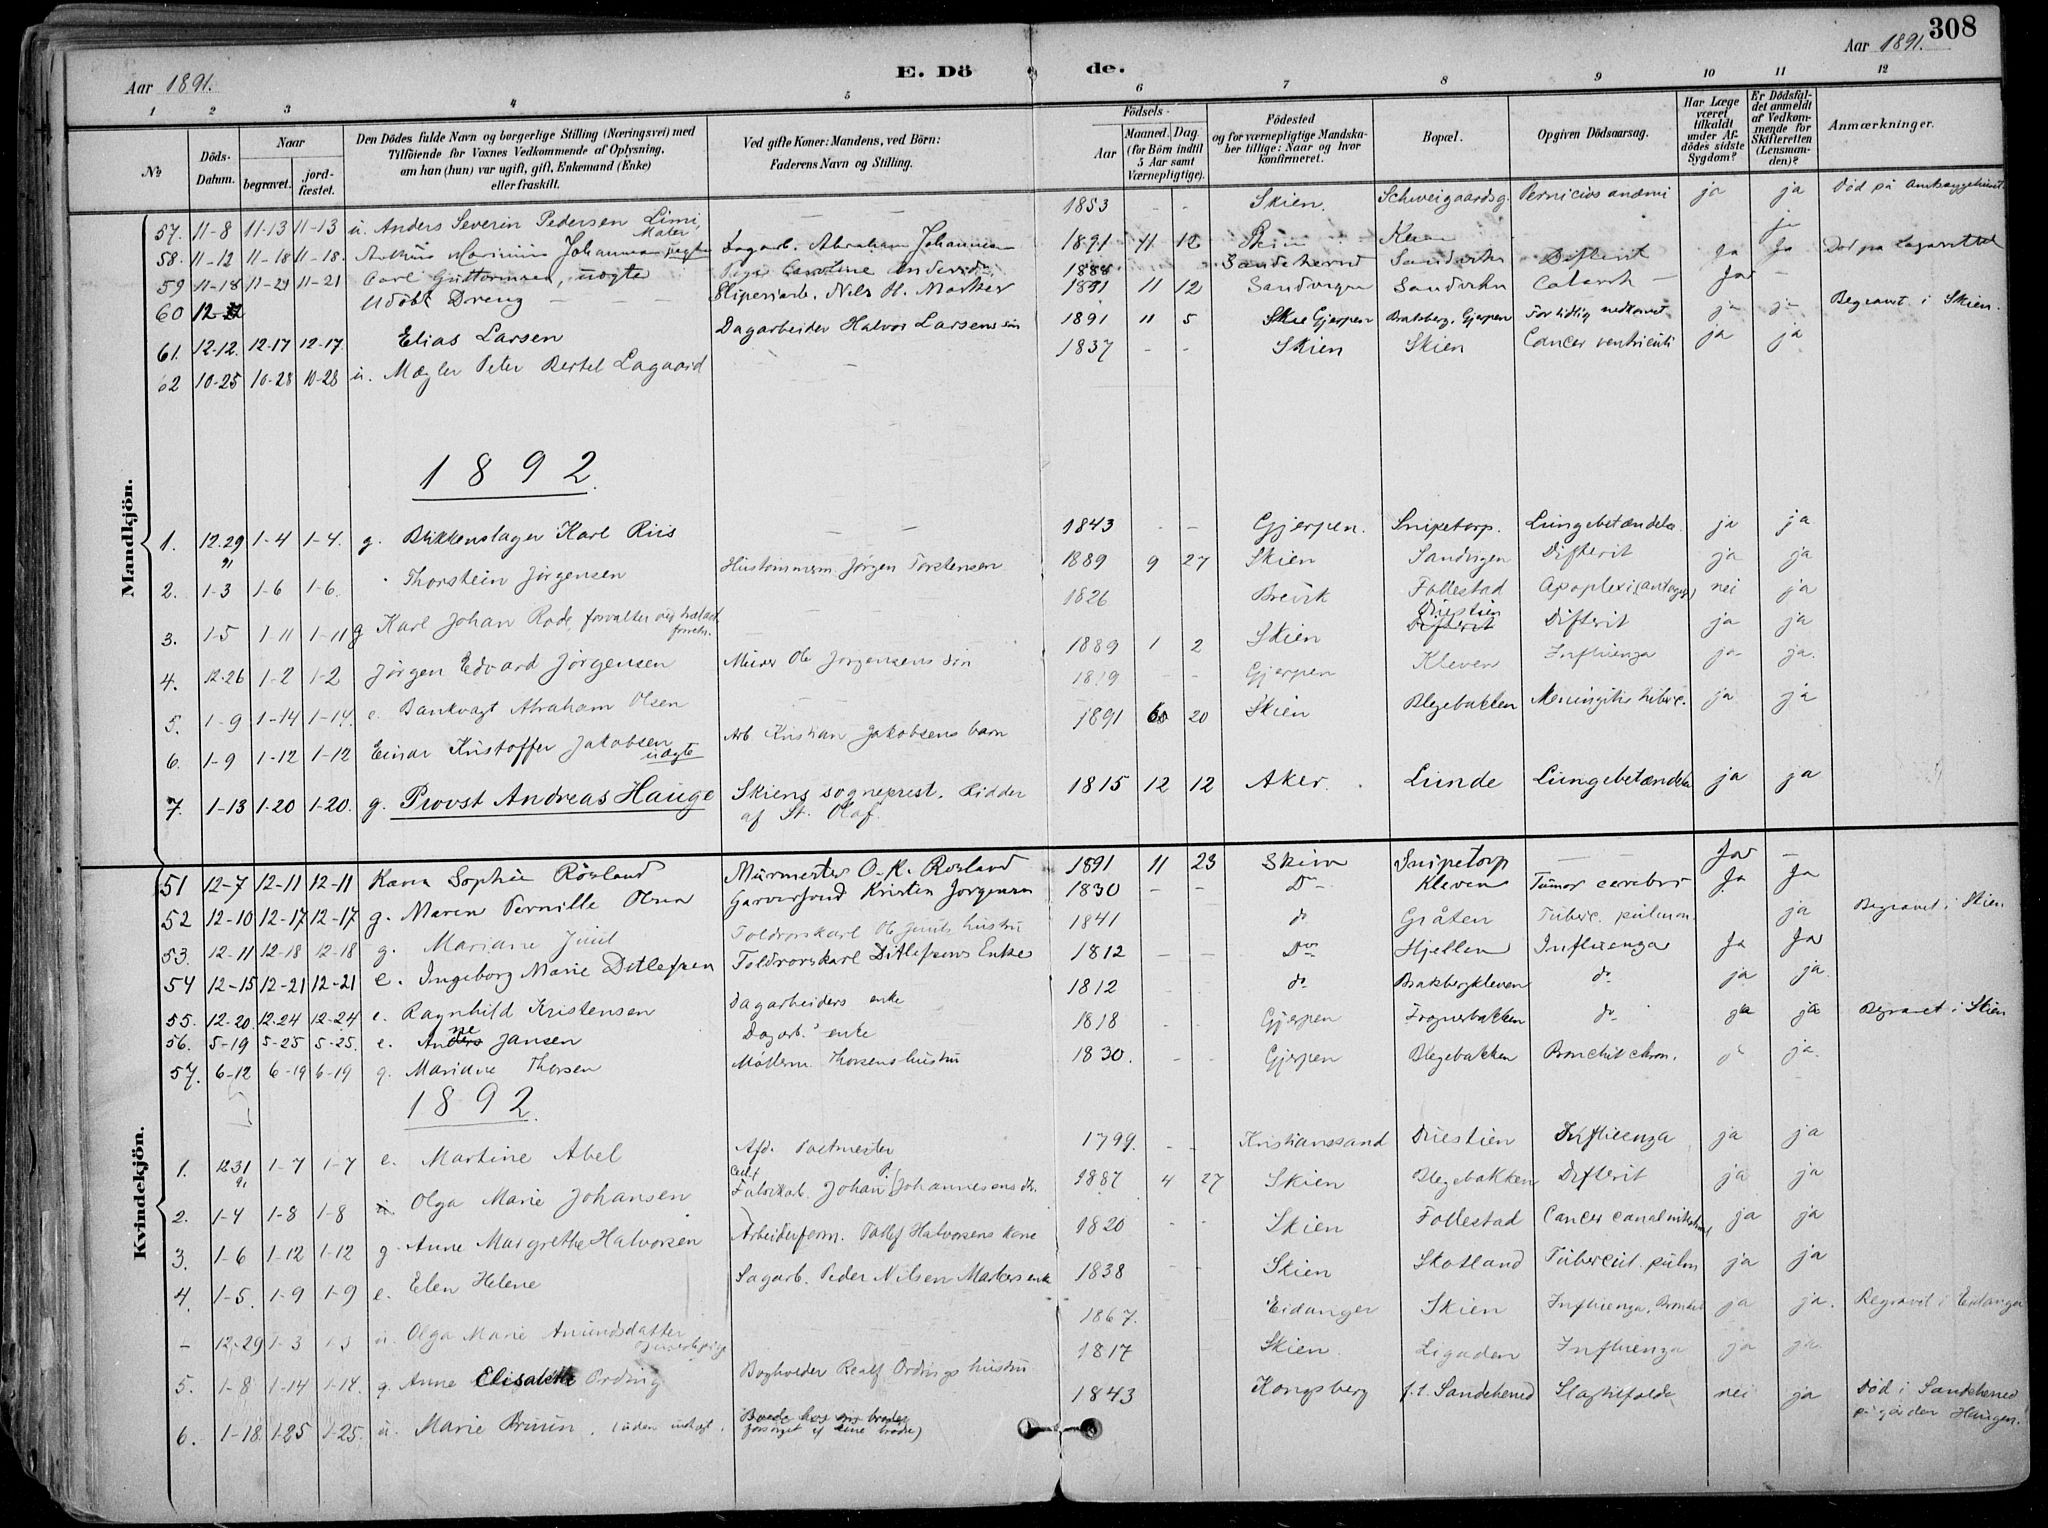 308
Aar 1891. E. Dö de. Aar 1891.
1 2 3 4 5 6 7 8 9 10 11 12
No
Döds-Datum.
Naar begravet. jord-fæstet.
Den Dödes fulde Navn og borgerlige Stilling (Næringsvei) med Tilföiende for Voxnes Vedkommende af Oplysning, om han (hun) var ugift, gift, Enkemand (Enke) eller fraskilt.
Ved gifte Koner: Mandens, ved Börn: Faderens Navn og Stilling.
Födsels- Aar Maaned. Dag. (for Börn indtil 5 Aar samt Værnepligtige).
Födested og for værnepligtige Mandska-ber tillige: Naar og hvor konfirmeret.
Bopæl.
Opgiven Dödsaarsag.
Har Læge været tilkaldt under Af-dödes sidste Sygdom?
Er Dödsfal-det anmeldt af Vedkom-mende for Skifteretten (Lensman-den)?
Anmærkninger.
Mandkjön.
57. 11-8 11-13 11-13 u. Anders Severin Pedersen Limi Maler — 1853 - - Skien. Schweigaardsg. Perniciøs anæmi ja ja Död på Amtssygehuset
58. 11-12 11-18 11-18. Johannesen Dagarb. Abraham Johannesen 1891 11 12 Skien ja
59 11-18 11-21 11-21 Carl Guttormsen, uægte Pige Caroline 1888 Sandeherred Sandviken Difterit Ja Ja Död på Lazarettet
60 12-2 Udöbt Dreng — Sliperiarb. Nils H. Marker 1891 11 12 Sandvigen Sandviken Catarrh — Ja —
61. 12-12. 12-17 12-17. Elias Larsen Dagarbeider Halvor Larsens sön 1891 11 5 Gjerpen Bratsberg, Gjerpen For tidlig nedkomst ja ja Begravet i Skien.
62 10-25 10-28 10-28 u. Mægler Peter Bertel Lagaard 1837 - - Skien Skien Cancer ventriculi ja ja
1892.
1. 12-29 91 1-4 1-4. g. Blikkenslager Karl Riis — 1843 - - Gjerpen. Snipetorp. Lungebetændelse. ja ja
2. 1-3 1-6 1-6. Thorstein Jørgensen Hustømmerm. Jørgen Torstensen 1889 9 27 Skien Sandvigen Difterit ja ja
3. 1-5 1-11 1-11 g Karl Johan Rode, forvalter ved trælastforretn. — 1826 Brevik Follestad Apoplexi (antagen) nei ja
4. 12-26 1-2 1-2 Jørgen Edvard Jørgensen Murer Ole Jørgensens sön 1889 1 2 Skien Duestien Difterit Difterit ja ja
5. 1-9 1-14 1-14. e. Bankvagt Abraham Olsen — 1819 - - Gjerpen Kleven Influenza ja ja.
6. 1-9 1-12 1-12 Einar Kristoffer Jakobsen uægte Arb. Kristian Jakobsens barn 1891 6 20 Skien Blegebakken Meningitis tuberc. ja ja
7. 1-13 1-20 1-20. g. Provst Andreas Hauge Skiens sogneprest. Ridder af St. Olaf. 1815 12 12 Aker. Lunde Lungebetændelse ja ja
Kvindekjön.
51 12-7 12-11 12-11 Karen Sophie Rösland Murmester O. K. Rosland 1891 11 23 Skien Snipetorp — — Ja —
52 12-10 12-17 12-17 g. Maren Pernille Olsen Garversvend Kristen Jorgensen 1830 - - Do Kleven Tumor cerebri Ja Ja
53. 12-11 12-18 12-18 g. Mariane Juul Toldrorskarl Ole Juuls hustru 1841 do Gråten Tuberc. pulmon. ja Begravet i Skien
54 12-15 12-21 12-21 e. Ingeborg Marie Ditlefsen Toldrorskarl Ditlefsens Enke 1812 - - Do Hjellen Influenza Ja Ja
55. 12-20. 12-24 12-24 e. Ragnhild Kristensen Dagarbeiders enke 1812 do Bratsbergkleven do ja ja.
56. 5-19 5-25 5-25. e. Anne Jansen Dagarb.s enke 1818 Gjerpen Frognerbakken do ja ja Begravet i Skien
57. 6-12 6-19 6-19 g. Mariane Thorsen Møllerm. Thorsens hustru 1830. - - Gjerpen Blegebakken Bronchit chron. ja.
1892.
1. 12-31 91 1-7 1-7 e. Martine Abel Afd. Postmester 1799. - - Kristianssand Duestien Influenza ja ja
2. 1-4 1-8 1-8 Olga Marie Johansen Fabrikarb. Johan P. Johannesens dt. 1887 4 27 Skien Blegebakken Difterit ja ja
3. 1-6 1-12 1-12 g. Anne Margrethe Halvorsen Arbeiderform. Tollef Halvorsens kone 1820 - - Skien Follestad Cancer ja ja
4. 1-5. 1-9 1-9 e. Elen Helene Sagarb. Peder Nilsen Markers enke 1838 - - Skien Skotland Tubercul. pulm ja ja
- 12-29 1-3 1-3 u. Olga Marie Amundsdatter 1867. Eidanger Skien Influenza, Bronkit ja ja. Begravet i Eidanger
5. 1-8 1-14 1-14. g. Anne Elisabeth Ording Bogholder Realf Ordings hustru 1817 Skien. Ligaden Influenza ja ja.
6. 1-18. 1-25 1-25. u. Marie Bruun. (uden indtægt, Boede hos sin broder forsørget af sine brødre) 1843 Kongsberg f. t. Sandeherred Slagtilfælde nei ja Död i Sandeherred på gården Haugen.